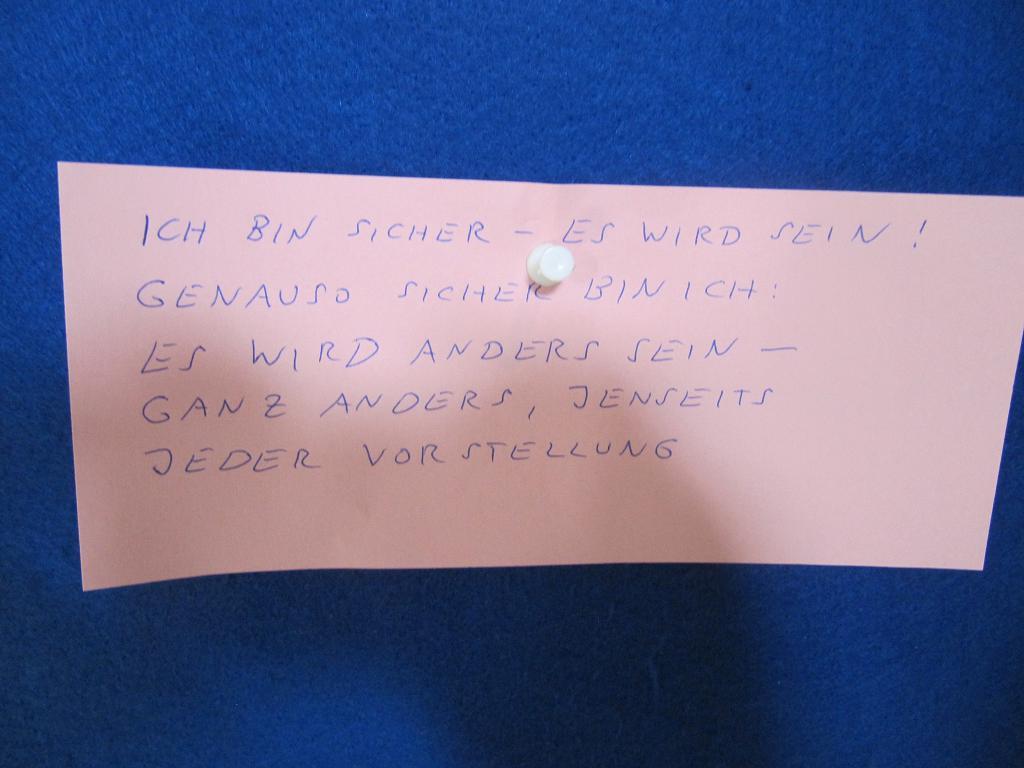 ICH BIN SICHER – ES WIRD SEIN!
GENAUSO SICHER BIN ICH:
ES WIRD ANDERS SEIN –
GANZ ANDERS, JENSEITS
JEDER VORSTELLUNG